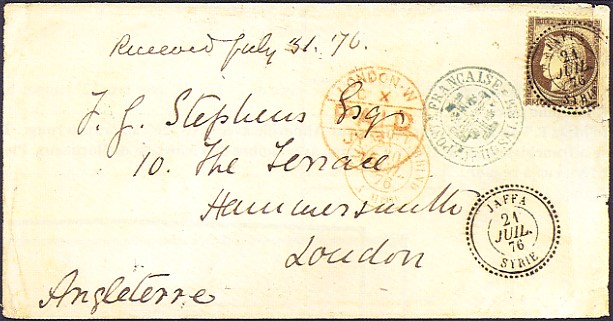 Received July 31. '76.
JAFFA
21
JUIL.
76
SYRIE
LONDON·W
C X
PAID
76
F. G. Stephens Esqr
10. The Terrace
Hammersmith
London
Angleterre
JAFFA
21
JUIL.
76
SYRIE